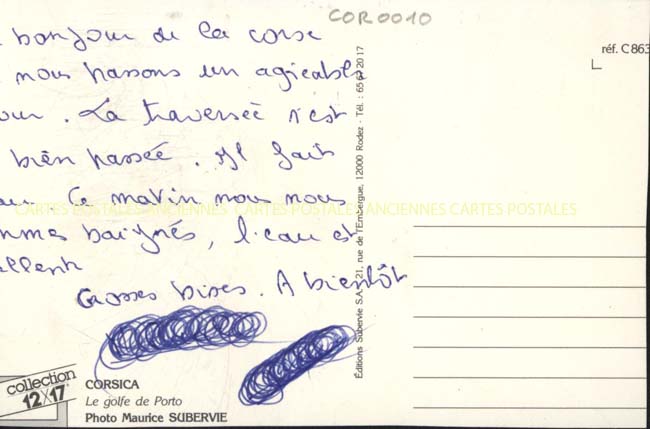 COR0010
bonjour de la corse
réf. C 863
nous passons un agréable
our. La traversée s'est
bien passée. Il fait
au Ce matin nous nous
CARTES POSTALES ANCIENNES CARTES POSTALES ANCIENNES CARTES POSTALES
mmes baignés, l'eau est
ellente
Grosses bises. A bientôt
Éditions Subervie S.A. - 21, rue de l'Embergue, 12000 Rodez - Tél. : 65 67 20 17
collection
12x17
CORSICA
Le golfe de Porto
Photo Maurice SUBERVIE